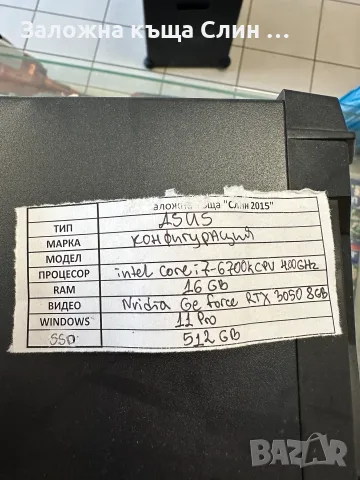 Заложна къща Слин ...
заложна къща "Слин 2015"
ТИП ASUS
МАРКА конфигурация
МОДЕЛ
ПРОЦЕСОР intel Core i7-6700k CPU 400GHz
RAM 16 GB
ВИДЕО Nvidia Ge force RTX 3050 8GB
WINDOWS 11 Pro
SSD 512 GB
BAZAR